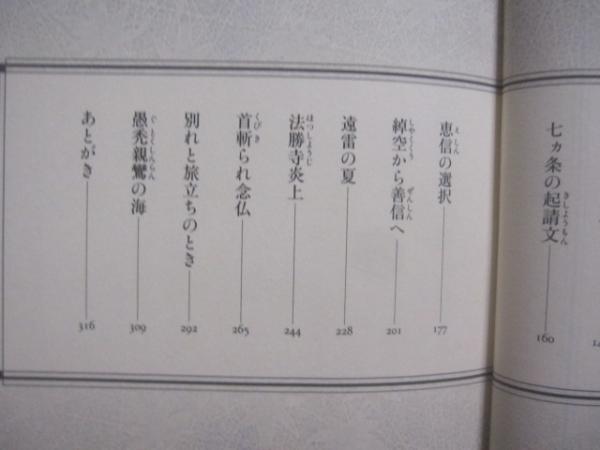 七ヵ条の起請文 160
恵信の選択 177
綽空から善信へ 201
遠雷の夏 228
法勝寺炎上 244
首斬られ念仏 265
別れと旅立ちのとき 292
愚禿親鸞の海 309
あとがき 316